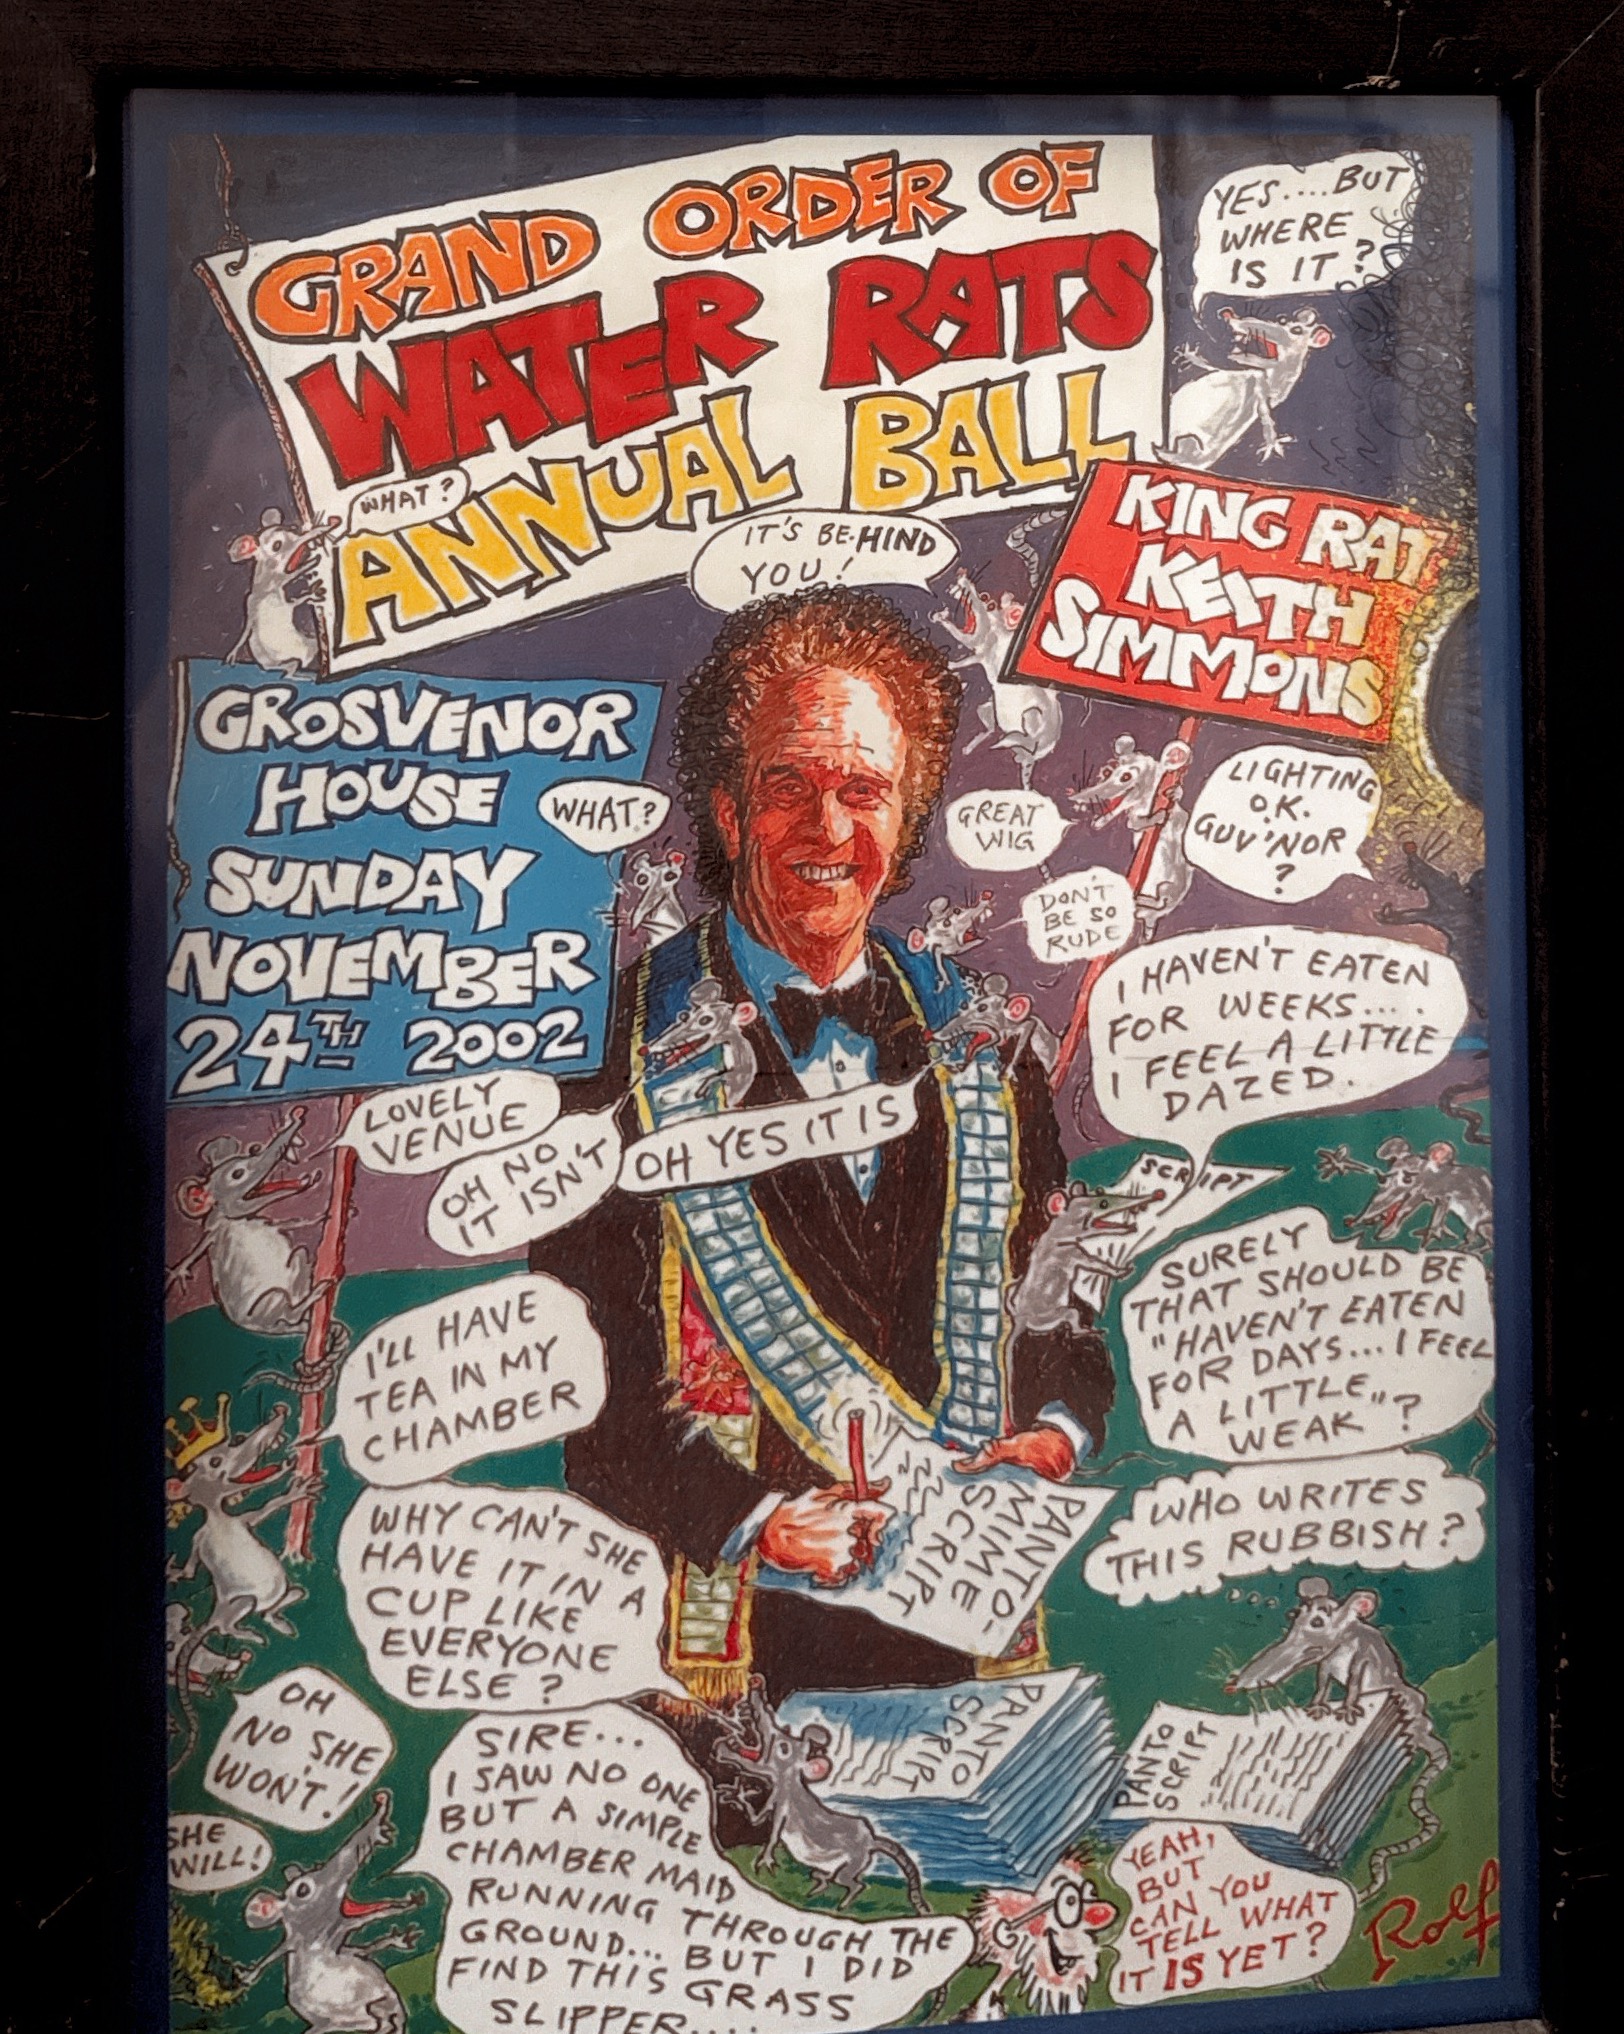 GRAND ORDER OF
WATER RATS
ANNUAL BALL
YES....BUT
WHERE
IS IT?
WHAT?
IT'S BE-HIND
YOU!
KING RAT
KEITH
SIMMONS
GROSVENOR
HOUSE
SUNDAY
NOVEMBER
24TH 2002
WHAT?
GREAT
WIG
LIGHTING
O.K.
GUV'NOR
?
DON'T
BE SO
RUDE
I HAVEN'T EATEN
FOR WEEKS....
I FEEL A LITTLE
DAZED.
LOVELY
VENUE
OH NO
IT ISN'T
OH YES IT IS
SCRIPT
SURELY
THAT SHOULD BE
"HAVEN'T EATEN
FOR DAYS... I FEEL
A LITTLE
WEAK"?
I'LL HAVE
TEA IN MY
CHAMBER
PANTO-
MIME
SCRIPT
SCRIPT
WHO WRITES
THIS RUBBISH?
WHY CAN'T SHE
HAVE IT IN A
CUP LIKE
EVERYONE
ELSE?
OH
NO SHE
WON'T!
SHE
WILL!
PANTO
SCRIPT
SCRIPT
PANTO
SCRIPT
SIRE...
I SAW NO ONE
BUT A SIMPLE
CHAMBER MAID
RUNNING THROUGH THE
GROUND... BUT I DID
FIND THIS GRASS
SLIPPER....
YEAH,
BUT
CAN YOU
TELL WHAT
IT IS YET?
Rolf